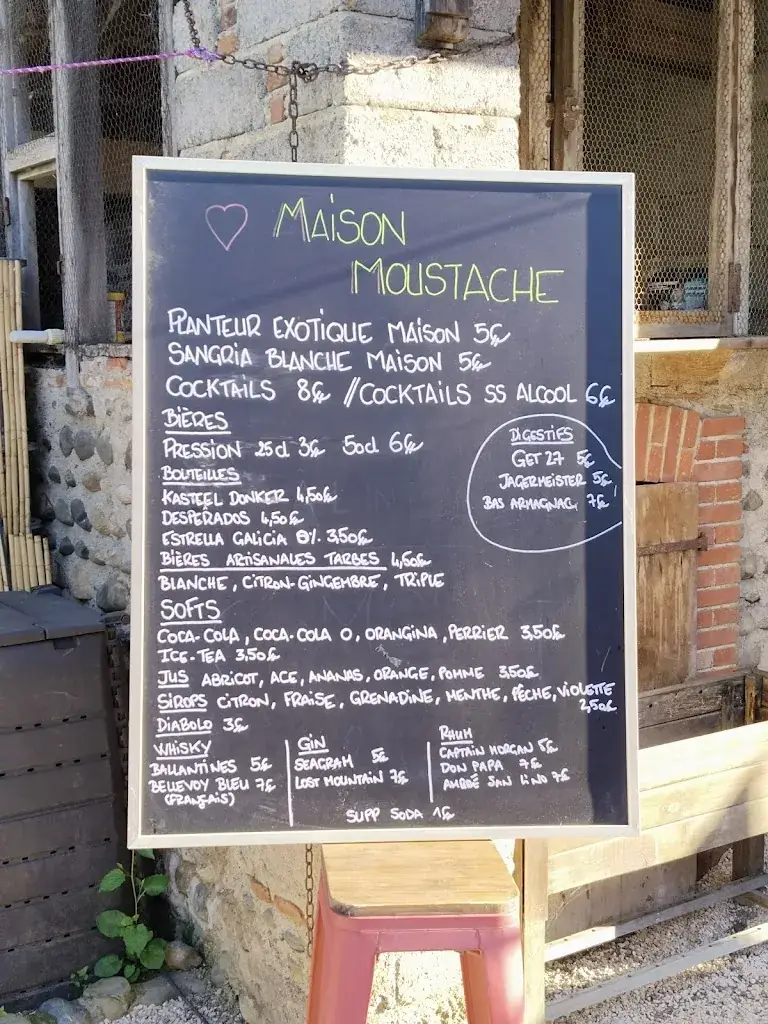 MAISON
MOUSTACHE
PLANTEUR EXOTIQUE MAISON 5€
SANGRIA BLANCHE MAISON 5€
COCKTAILS 8€ // COCKTAILS SS ALCOOL 6€
BIÈRES
PRESSION 25cl 3€ 50cl 6€
BOUTEILLES
KASTEEL DONKER 4,50€
DESPERADOS 4,50€
ESTRELLA GALICIA 0%. 3,50€
BIÈRES ARTISANALES TARBES 4,50€
BLANCHE, CITRON-GINGEMBRE, TRIPLE
DIGESTIFS
GET 27 5€
JAGERMEISTER 5€
BAS ARMAGNAC 7€
SOFTS
COCA-COLA, COCA-COLA 0, ORANGINA, PERRIER 3,50€
ICE-TEA 3,50€
JUS ABRICOT, ACE, ANANAS, ORANGE, POMME 3,50€
SIROPS CITRON, FRAISE, GRENADINE, MENTHE, PÊCHE, VIOLETTE
2,50€
DIABOLO 3€
WHISKY
BALLANTINES 5€
BELLEVOY BLEU 7€
(FRANÇAIS)
GIN
SEAGRAM 5€
LOST MOUNTAIN 7€
RHUM
CAPTAIN MORGAN 5€
DON PAPA 7€
SAN LINO 7€
SUPP SODA 1€